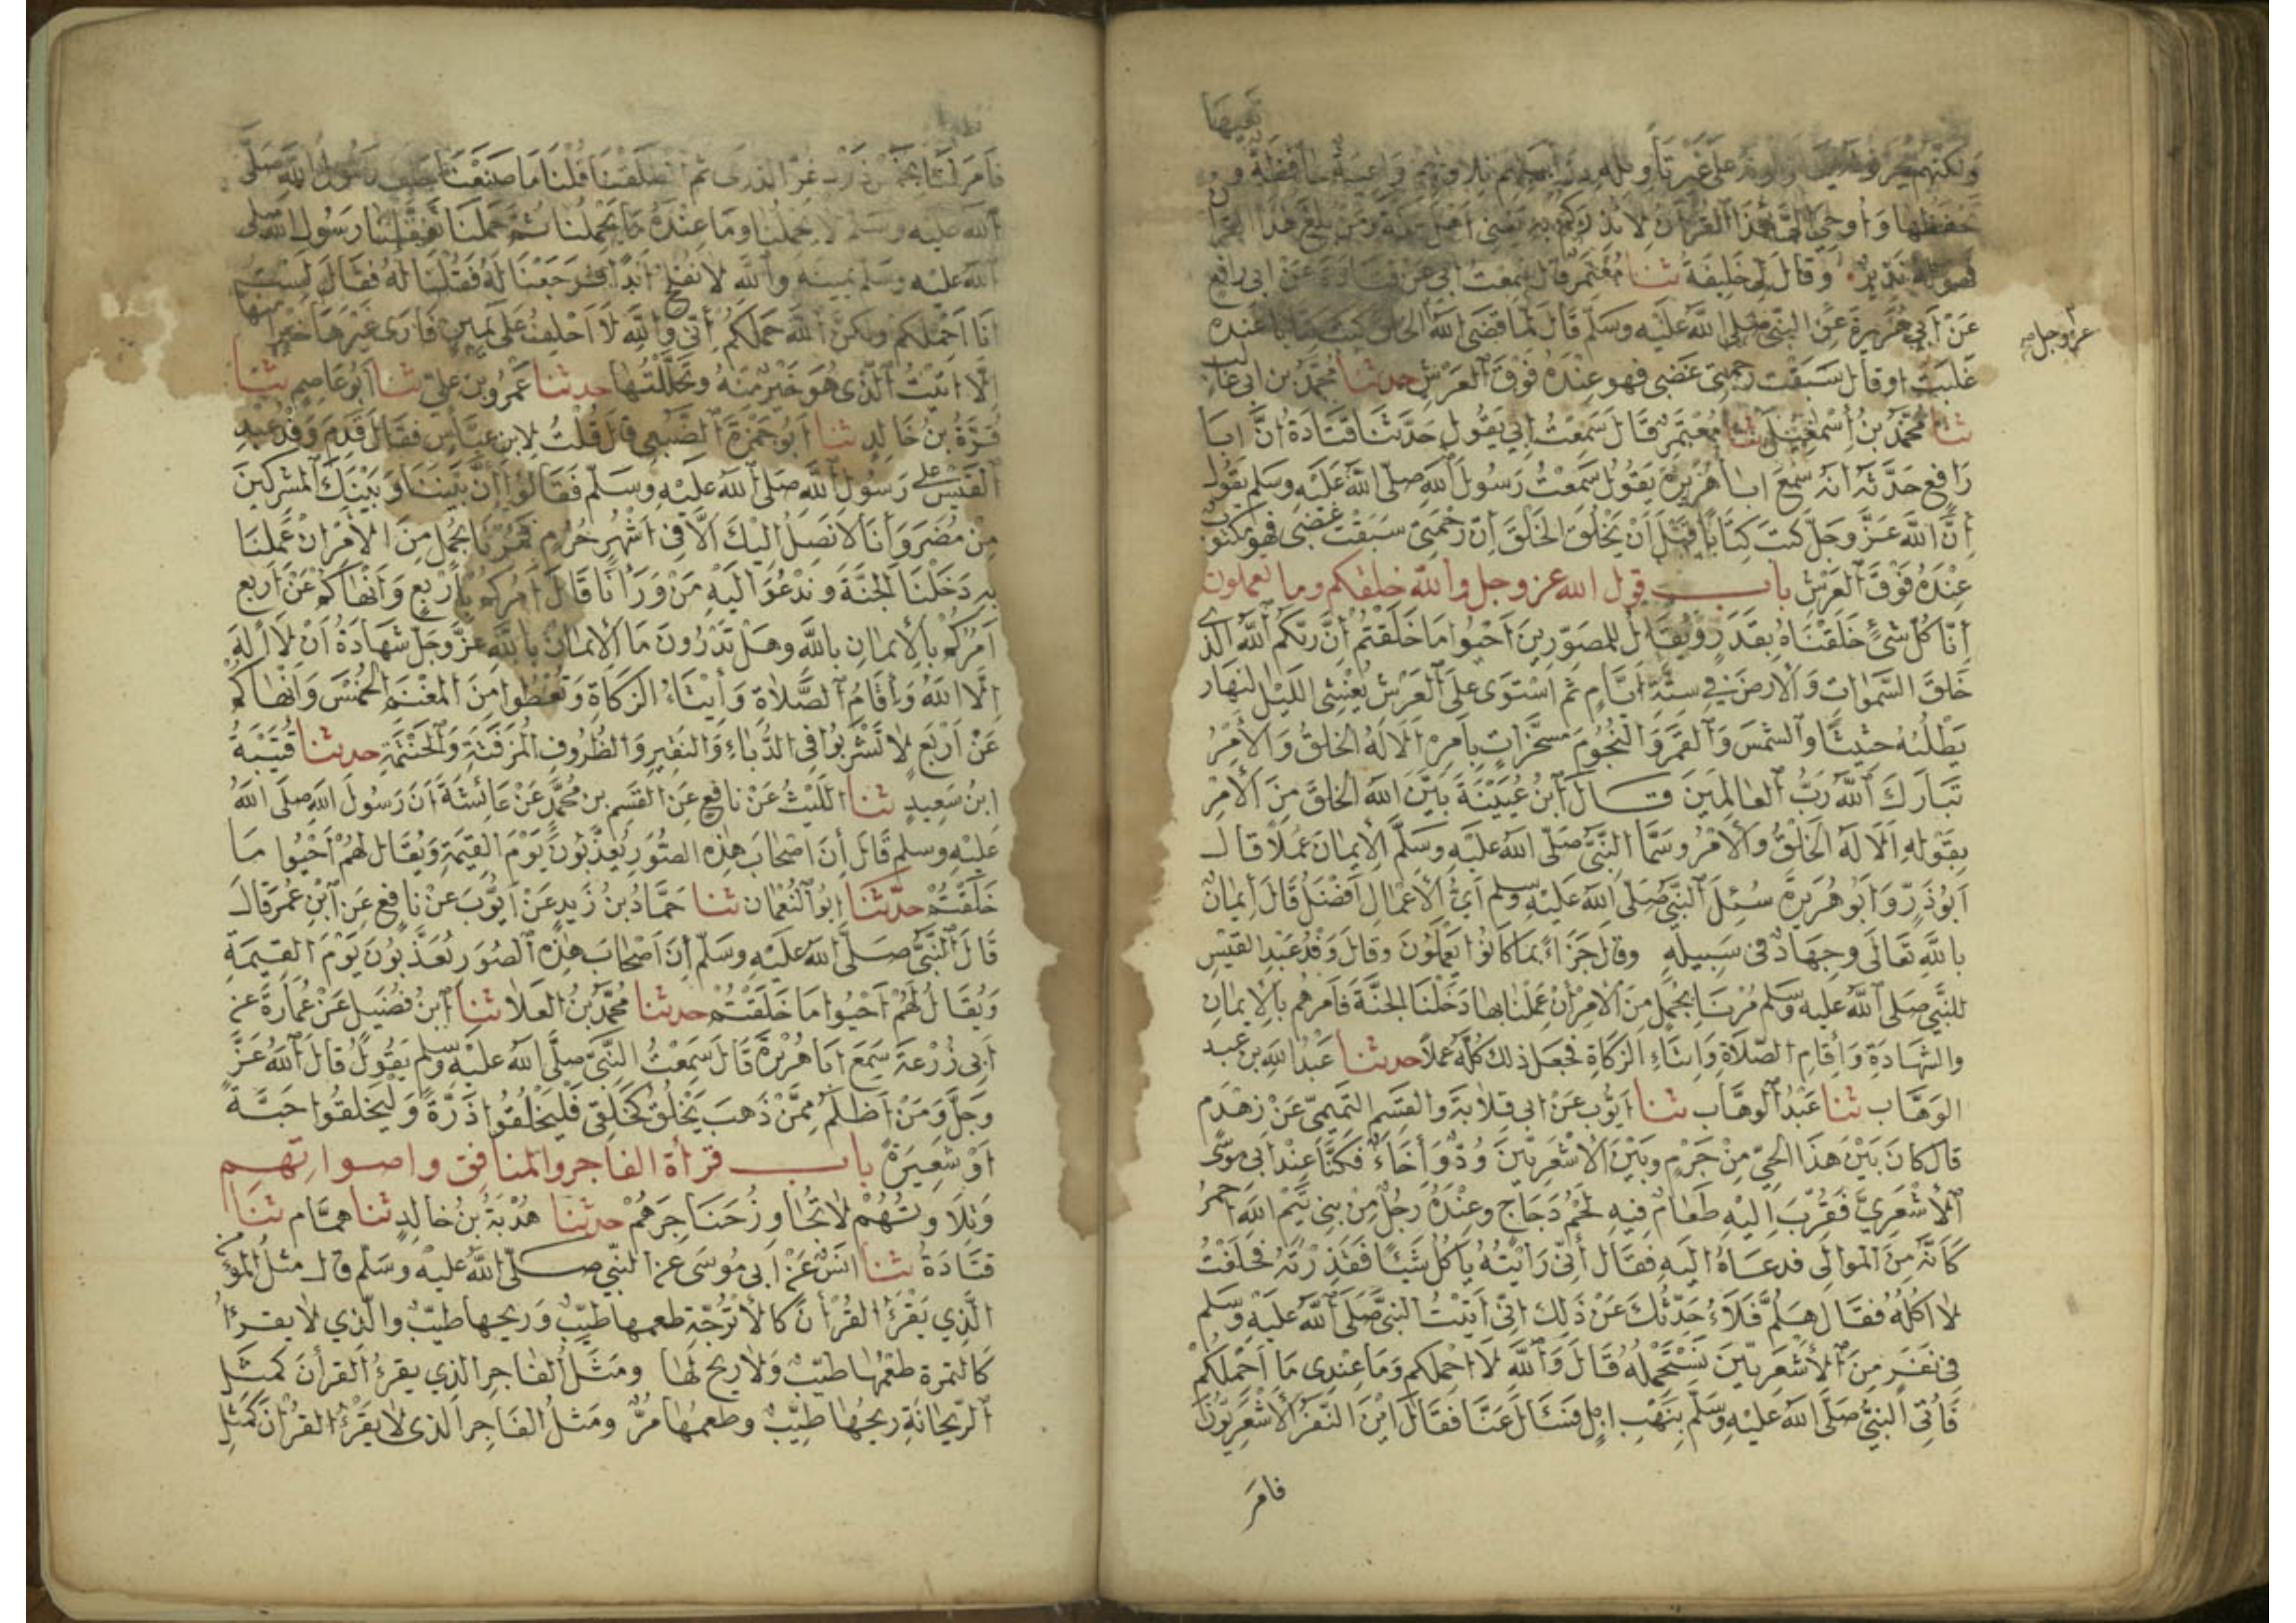 تعيها
ولكنهم يحرفونه يتأولونه على غير تأويله دراستهم تلاوتهم واعية حافظة و
تحفظها وأوحي إلي هذا القرآن لأنذركم به يعني أهل مكة ومن بلغ هذا القرآن
فهو له نذير وقال لي خليفة ثنا معتمر قال سمعت أبي عن قتادة عن أبي رافع
عن أبي هريرة عن النبي صلى الله عليه وسلم قال لما قضى الله الخلق كتب كتابا عنده
عز وجل صح
غلبت أو قال سبقت رحمتي غضبي فهو عنده فوق العرش حدثنا محمد بن أبي غالب
ثنا محمد بن إسمعيل ثنا معتمر قال سمعت أبي يقول حدثنا قتادة أن أبا
رافع حدثه أنه سمع أبا هريرة يقول سمعت رسول الله صلى الله عليه وسلم يقول
إن الله عز وجل كتب كتابا قبل أن يخلق الخلق إن رحمتي سبقت غضبي فهو مكتوب
عنده فوق العرش باب قول الله عز وجل والله خلقكم وما تعملون
إنا كل شيء خلقناه بقدر ويقال للمصورين أحيوا ما خلقتم إن ربكم الله الذي
خلق السموات والأرض في ستة أيام ثم استوى على العرش يغشي الليل النهار
يطلبه حثيثا والشمس والقمر والنجوم مسخرات بأمره ألا له الخلق والأمر
تبارك الله رب العالمين قال ابن عيينة بين الله الخلق من الأمر
بقوله ألا له الخلق والأمر وسما النبي صلى الله عليه وسلم الإيمان عملا قال
أبو ذر وأبو هريرة سئل النبي صلى الله عليه وسلم أي الأعمال أفضل قال إيمان
بالله تعالى وجهاد في سبيله وقال جزاء بما كانوا يعملون وقال وفد عبد القيس
للنبي صلى الله عليه وسلم مرنا بجمل من الأمر إن عملنا بها دخلنا الجنة فأمرهم بالإيمان
والشهادة وإقام الصلاة وإيتاء الزكاة فجعل ذلك كله عملا حدثنا عبد الله بن عبد
الوهاب ثنا عبد الوهاب ثنا أيوب عن أبي قلابة والقسم التميمي عن زهدم
قال كان بين هذا الحي من جرم وبين الأشعريين ود وإخاء فكنا عند أبي موسى
الأشعري فقرب إليه طعام فيه لحم دجاج وعنده رجل من بني تيم الله أحمر
كأنه من الموالي فدعاه إليه فقال إني رأيته يأكل شيئا فقذرته فحلفت
لا آكله فقال هلم فلأحدثك عن ذلك إني أتيت النبي صلى الله عليه وسلم
في نفر من الأشعريين نستحمله قال والله لا أحملكم وما عندي ما أحملكم
فأتي النبي صلى الله عليه وسلم بنهب إبل فسئال عنا فقال أين النفر الأشعريون
فامر
فأمر لنا بخمس ذود غر الذرى ثم انطلقنا قلنا ما صنعنا حلف رسول الله صلى
الله عليه وسلم لا يحملنا وما عنده ما يحملنا ثم حملنا تغفلنا رسول الله صلى
الله عليه وسلم يمينه والله لا نفلح أبدا فرجعنا له فقلنا له فقال لست
أنا أحملكم ولكن الله حملكم إني والله لا أحلف على يمين فأرى غيرها خيرا منها
إلا أتيت الذي هو خير منه وتحللتها حدثنا عمرو بن علي ثنا أبو عاصم ثنا
قرة بن خالد ثنا أبو جمرة الضبعي قال قلت لابن عباس فقال قدم وفد عبد
القيس على رسول الله صلى الله عليه وسلم فقالوا إن بيننا وبينك المشركين
من مضر وإنا لا نصل إليك إلا في أشهر حرم فمرنا بجمل من الأمر إن عملنا
به دخلنا الجنة وندعو إليه من وراءنا قال آمركم بأربع وأنهاكم عن أربع
آمركم بالإيمان بالله وهل تدرون ما الإيمان بالله عز وجل شهادة أن لا إله
إلا الله وإقام الصلاة وإيتاء الزكاة وتعطوا من المغنم الخمس وأنهاكم
عن أربع لا تشربوا في الدباء والنقير والظروف المزفتة والحنتمة حدثنا قتيبة
ابن سعيد ثنا الليث عن نافع عن القسم بن محمد عن عائشة أن رسول الله صلى الله
عليه وسلم قال إن أصحاب هذه الصور يعذبون يوم القيمة ويقال لهم أحيوا ما
خلقتم حدثنا أبو النعمان ثنا حماد بن زيد عن أيوب عن نافع عن ابن عمر قال
قال النبي صلى الله عليه وسلم إن أصحاب هذه الصور يعذبون يوم القيمة
ويقال لهم أحيوا ما خلقتم حدثنا محمد بن العلا ثنا ابن فضيل عن عمارة عن
أبي زرعة سمع أبا هريرة قال سمعت النبي صلى الله عليه وسلم يقول قال الله عز
وجل ومن أظلم ممن ذهب يخلق كخلقي فليخلقوا ذرة وليخلقوا حبة
أو شعيرة باب قرأة الفاجر والمنافق وأصواتهم
وتلاوتهم لا تجاوز حناجرهم حدثنا هدبة بن خالد ثنا همام ثنا
قتادة ثنا أنس عن أبي موسى عن النبي صلى الله عليه وسلم قال مثل المؤمن
الذي يقرأ القرأن كالأترجة طعمها طيب وريحها طيب والذي لا يقرأ
كالتمرة طعمها طيب ولا ريح لها ومثل الفاجر الذي يقرأ القرأن كمثل
الريحانة ريحها طيب وطعمها مر ومثل الفاجر الذي لا يقرأ القرأن كمثل